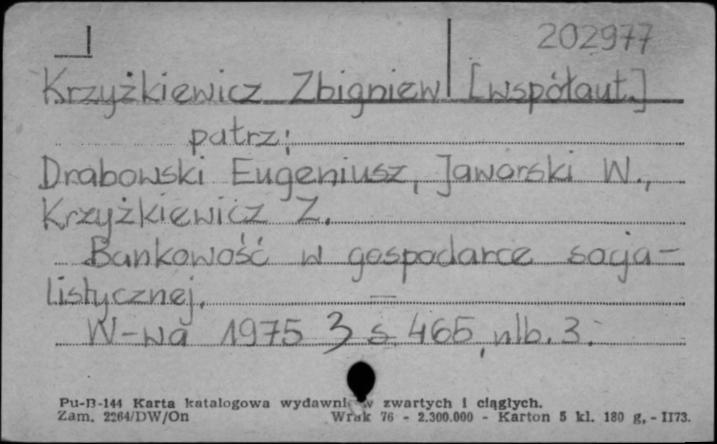 202977
Krzyżkiewicz Zbigniew [współaut.]
patrz:
Drabowski Eugeniusz, Jaworski W.,
Krzyżkiewicz Z.
Bankowość w gospodarce socja-
listycznej.
W-wa 1975 3 s. 465, nlb. 3.
Pu-B-144 Karta katalogowa wydawnictw zwartych i ciągłych.
Zam. 2264/DW/On Wrak 76 - 2.300.000 - Karton 5 kl. 180 g. - II73.